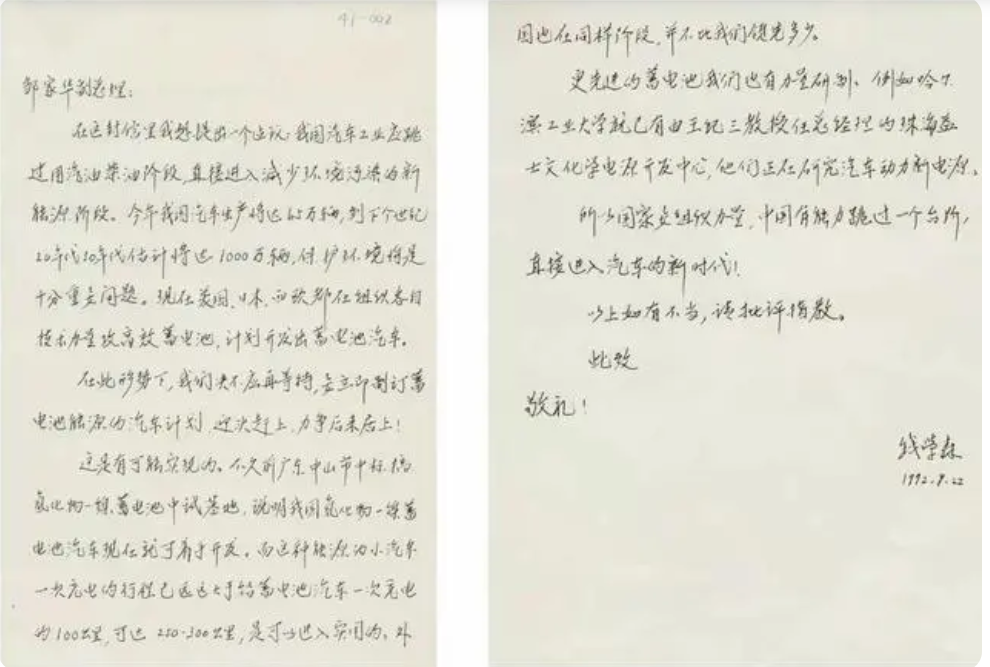 41-002
邹家华副总理：
在这封信里我想提出一个建议：我国汽车工业应跳
过用汽油柴油阶段，直接进入减少环境污染的新
能源阶段。今年我国汽车生产将达 万辆，到下个世纪
20年代30年代估计将达1000万辆，保护环境将是
十分重要问题。现在美国、日本、西欧都在组织各自
技术力量攻高效蓄电池，计划开发出蓄电池汽车。
在此形势下，我们决不应再等待，要立即制订蓄
电池能源的汽车计划，迎头赶上，力争后来居上！
这是有可能实现的。不久前广东中山市中标，搞
氢化物—镍蓄电池中试基地，说明我国氢化物—镍蓄
电池汽车现在就可着手开发。而这种能源的小汽车
一次充电的行程已远远大于铅蓄电池汽车一次充电
的100公里，可达250-300公里，是可以进入实用的。外
国也在同样阶段，并不比我们领先多少。
更先进的蓄电池我们也有力量研制。例如哈尔
滨工业大学就已有由王纪三教授任总经理的珠海益
士文化学电源开发中心，他们正在研究汽车动力新电源。
所以国家要组织力量，中国有能力跳过一个台阶，
直接进入汽车的新时代！
以上如有不当，请批评指教。
此致
敬礼！
钱学森
1992.8.22